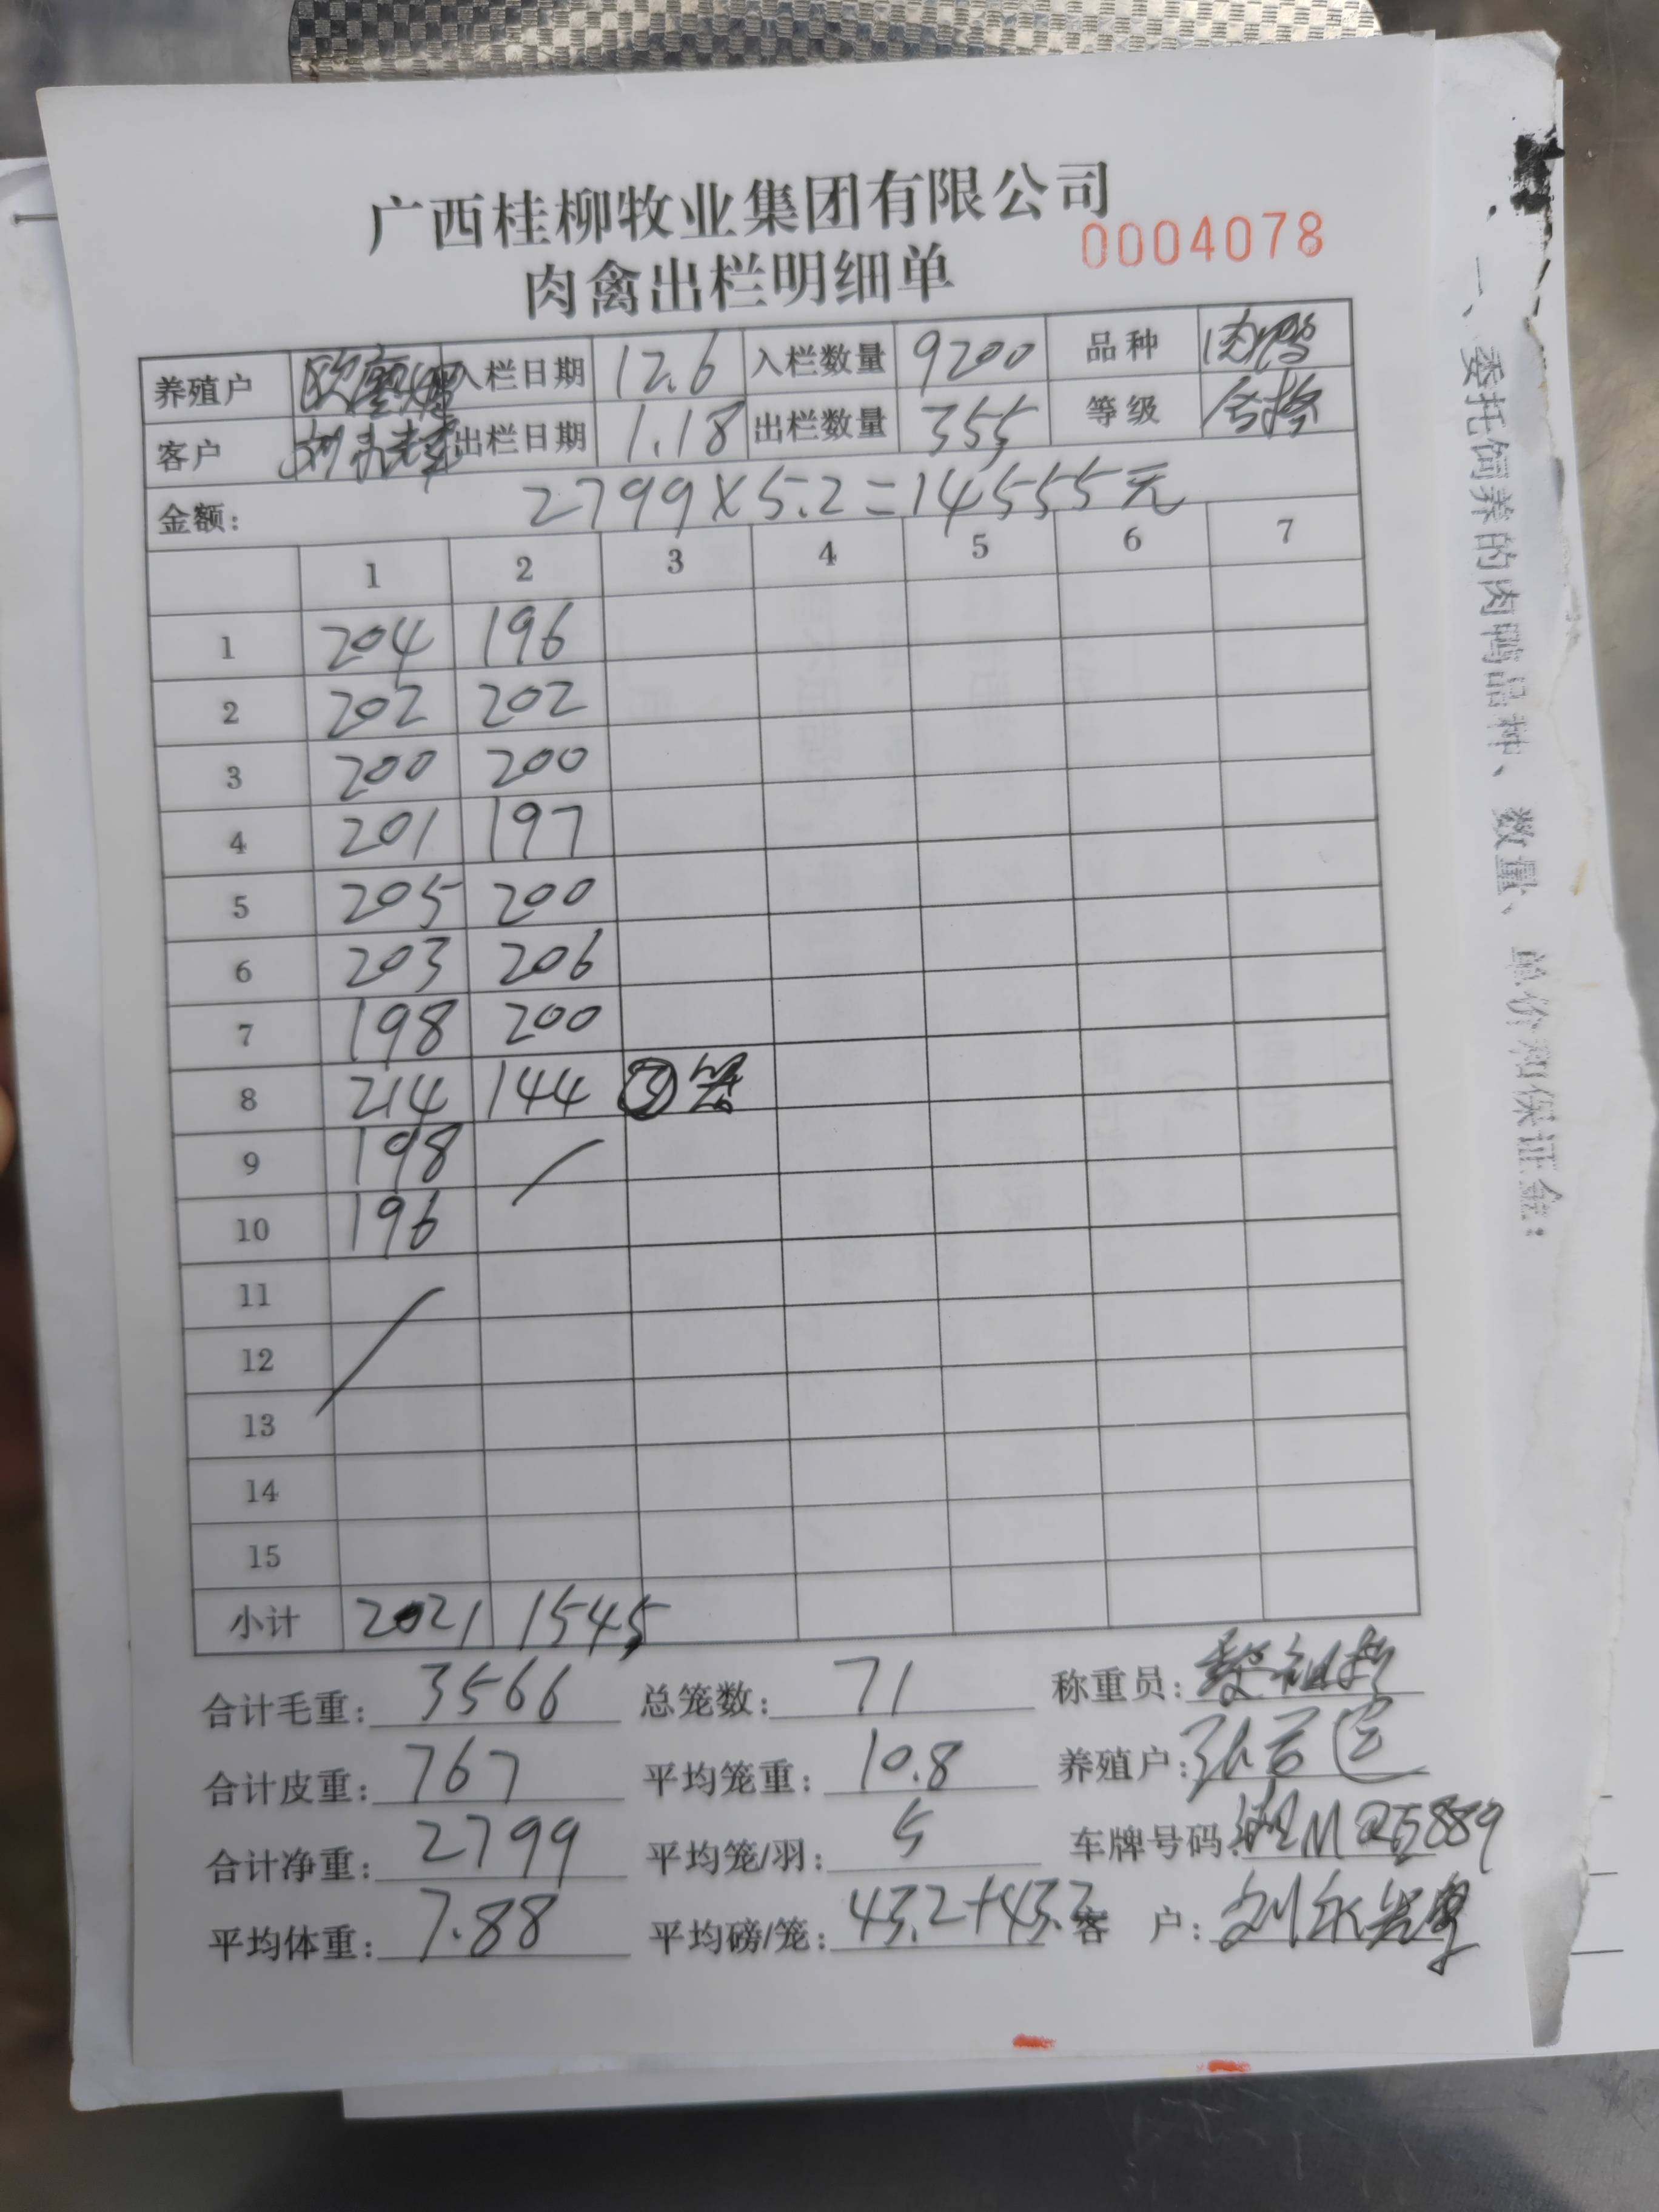 广西桂柳牧业集团有限公司
0004078
肉禽出栏明细单
养殖户 入栏日期 12.6 入栏数量 9200 品种 肉鸭
客户 出栏日期 1.18 出栏数量 355 等级 合格
金额: 2799×5.2=14555元
1 2 3 4 5 6 7
1 204 196
2 202 202
3 200 200
4 201 197
5 205 200
6 203 206
7 198 200
8 214 144 ③笼
9 198
10 196
11
12
13
14
15
小计 2021 1545
合计毛重: 3566 总笼数: 71 称重员:
合计皮重: 767 平均笼重: 10.8 养殖户:
合计净重: 2799 平均笼/羽: 5 车牌号码:
平均体重: 7.88 平均磅/笼: 43.2+43.2 客 户:
一、委托饲养的肉鸭品种、数量、单价和保证金: